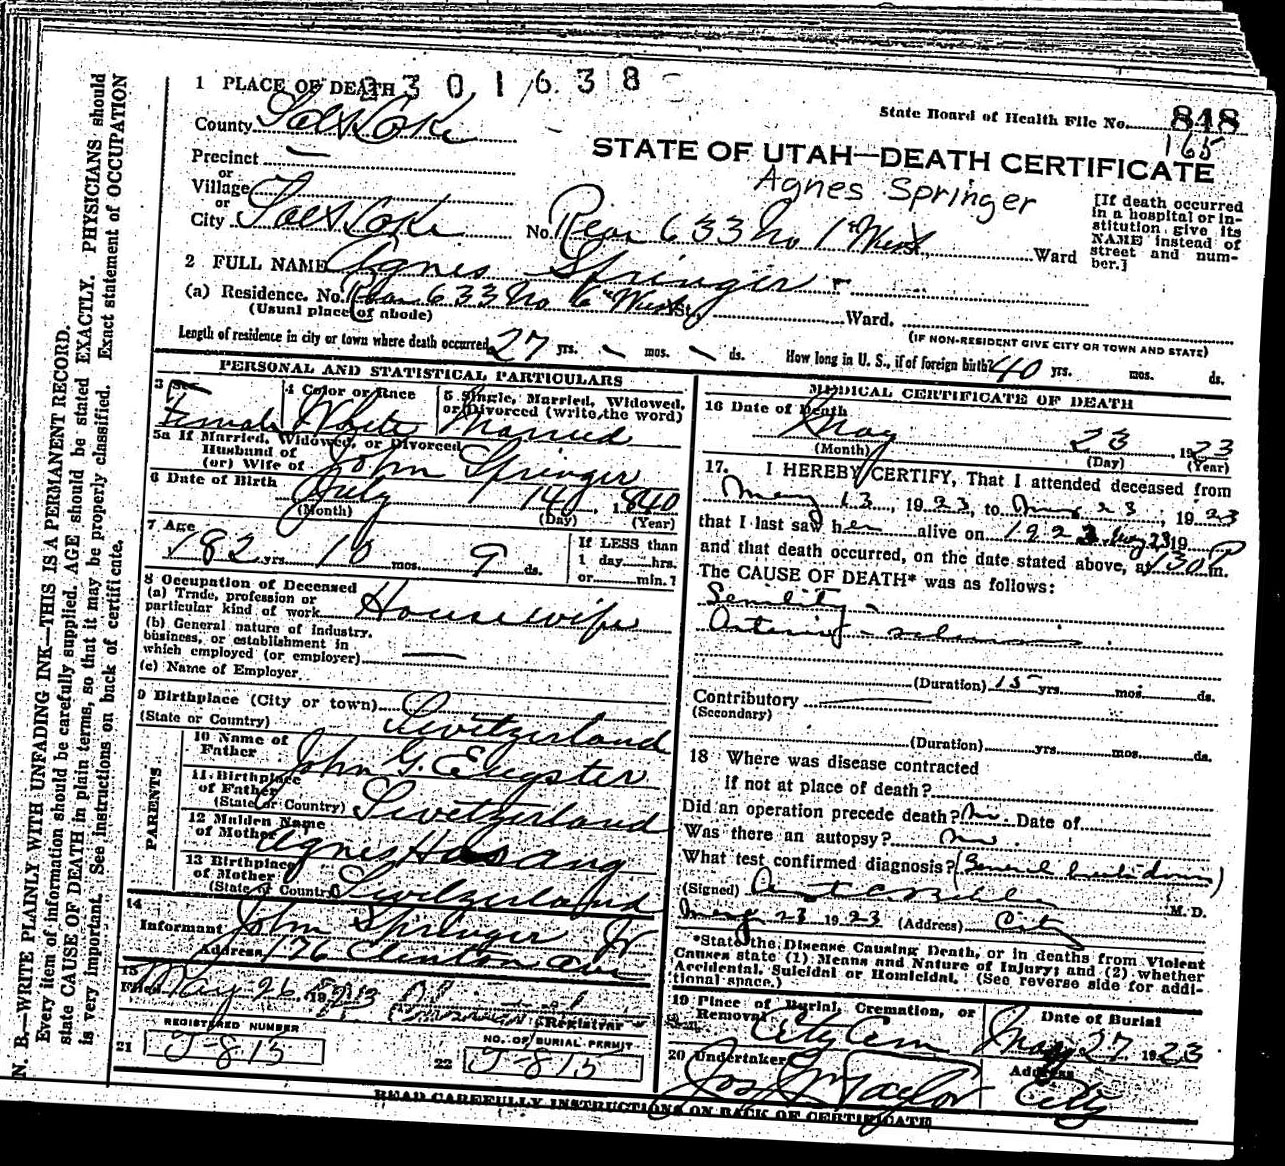 1 PLACE OF DEATH 0301638
State Board of Health File No. 848
165
County Salt Lake
STATE OF UTAH—DEATH CERTIFICATE
Precinct —
or
Village
or
City Salt Lake No. Rear 633 No 1st West St., Ward
Agnes Springer
[If death occurred
in a hospital or in-
stitution give its
NAME instead of
street and num-
ber.]
2 FULL NAME Agnes Springer
(a) Residence. No. Rear 633 No West St., Ward.
(Usual place of abode)
(IF NON-RESIDENT GIVE CITY OR TOWN AND STATE)
Length of residence in city or town where death occurred 27 yrs. - mos. - ds. How long in U. S., if of foreign birth? 40 yrs. mos. ds.
PERSONAL AND STATISTICAL PARTICULARS
3 Sex Female
4 Color or Race White
5 Single, Married, Widowed,
or Divorced (write the word)
Married
5a If Married, Widowed, or Divorced
Husband of
(or) Wife of John Springer
6 Date of Birth July 14, 1840
(Month) (Day) (Year)
7 Age 82 yrs. 10 mos. 9 ds.
If LESS than
1 day hrs.
or min.?
8 Occupation of Deceased
(a) Trade, profession or
particular kind of work Housewife
(b) General nature of industry,
business, or establishment in
which employed (or employer) —
(c) Name of Employer
9 Birthplace (City or town)
(State or Country) Switzerland
PARENTS
10 Name of
Father John G. Eugster
11 Birthplace
of Father
(State or Country) Switzerland
12 Maiden Name
of Mother Agnes
13 Birthplace
of Mother
(State or Country) Switzerland
14
Informant John Springer Jr
Address 176 Clinton Ave
15
Filed May 26, 1923 Registrar
REGISTERED NUMBER
21 J-815
NO. OF BURIAL PERMIT
22 J-815
MEDICAL CERTIFICATE OF DEATH
16 Date of Death
May 23, 1923
(Month) (Day) (Year)
17. I HEREBY CERTIFY, That I attended deceased from
May 13, 1923, to May 23, 1923
that I last saw her alive on 1923 May 23 19
and that death occurred, on the date stated above, at 130 P m.
The CAUSE OF DEATH* was as follows:
Senility -
Arterio - sclerosis.
(Duration) 15 yrs. mos. ds.
Contributory
(Secondary)
(Duration) yrs. mos. ds.
18 Where was disease contracted
if not at place of death?
Did an operation precede death? No. Date of
Was there an autopsy? No.
What test confirmed diagnosis? (General breakdown)
(Signed) M. D.
May 23 1923 (Address) City
*State the Disease Causing Death, or in deaths from Violent
Causes state (1) Means and Nature of Injury; and (2) whether
Accidental, Suicidal or Homicidal. (See reverse side for addi-
tional space.)
19 Place of Burial, Cremation, or
Removal City Cem
Date of Burial
May 27 1923
20 Undertaker Jos Wm Taylor
Address
City
READ CAREFULLY INSTRUCTIONS ON BACK OF CERTIFICATE
N. B.—WRITE PLAINLY WITH UNFADING INK—THIS IS A PERMANENT RECORD.
Every item of information should be carefully supplied. AGE should be stated EXACTLY. PHYSICIANS should
state CAUSE OF DEATH in plain terms, so that it may be properly classified. Exact statement of OCCUPATION
is very important. See instructions on back of certificate.